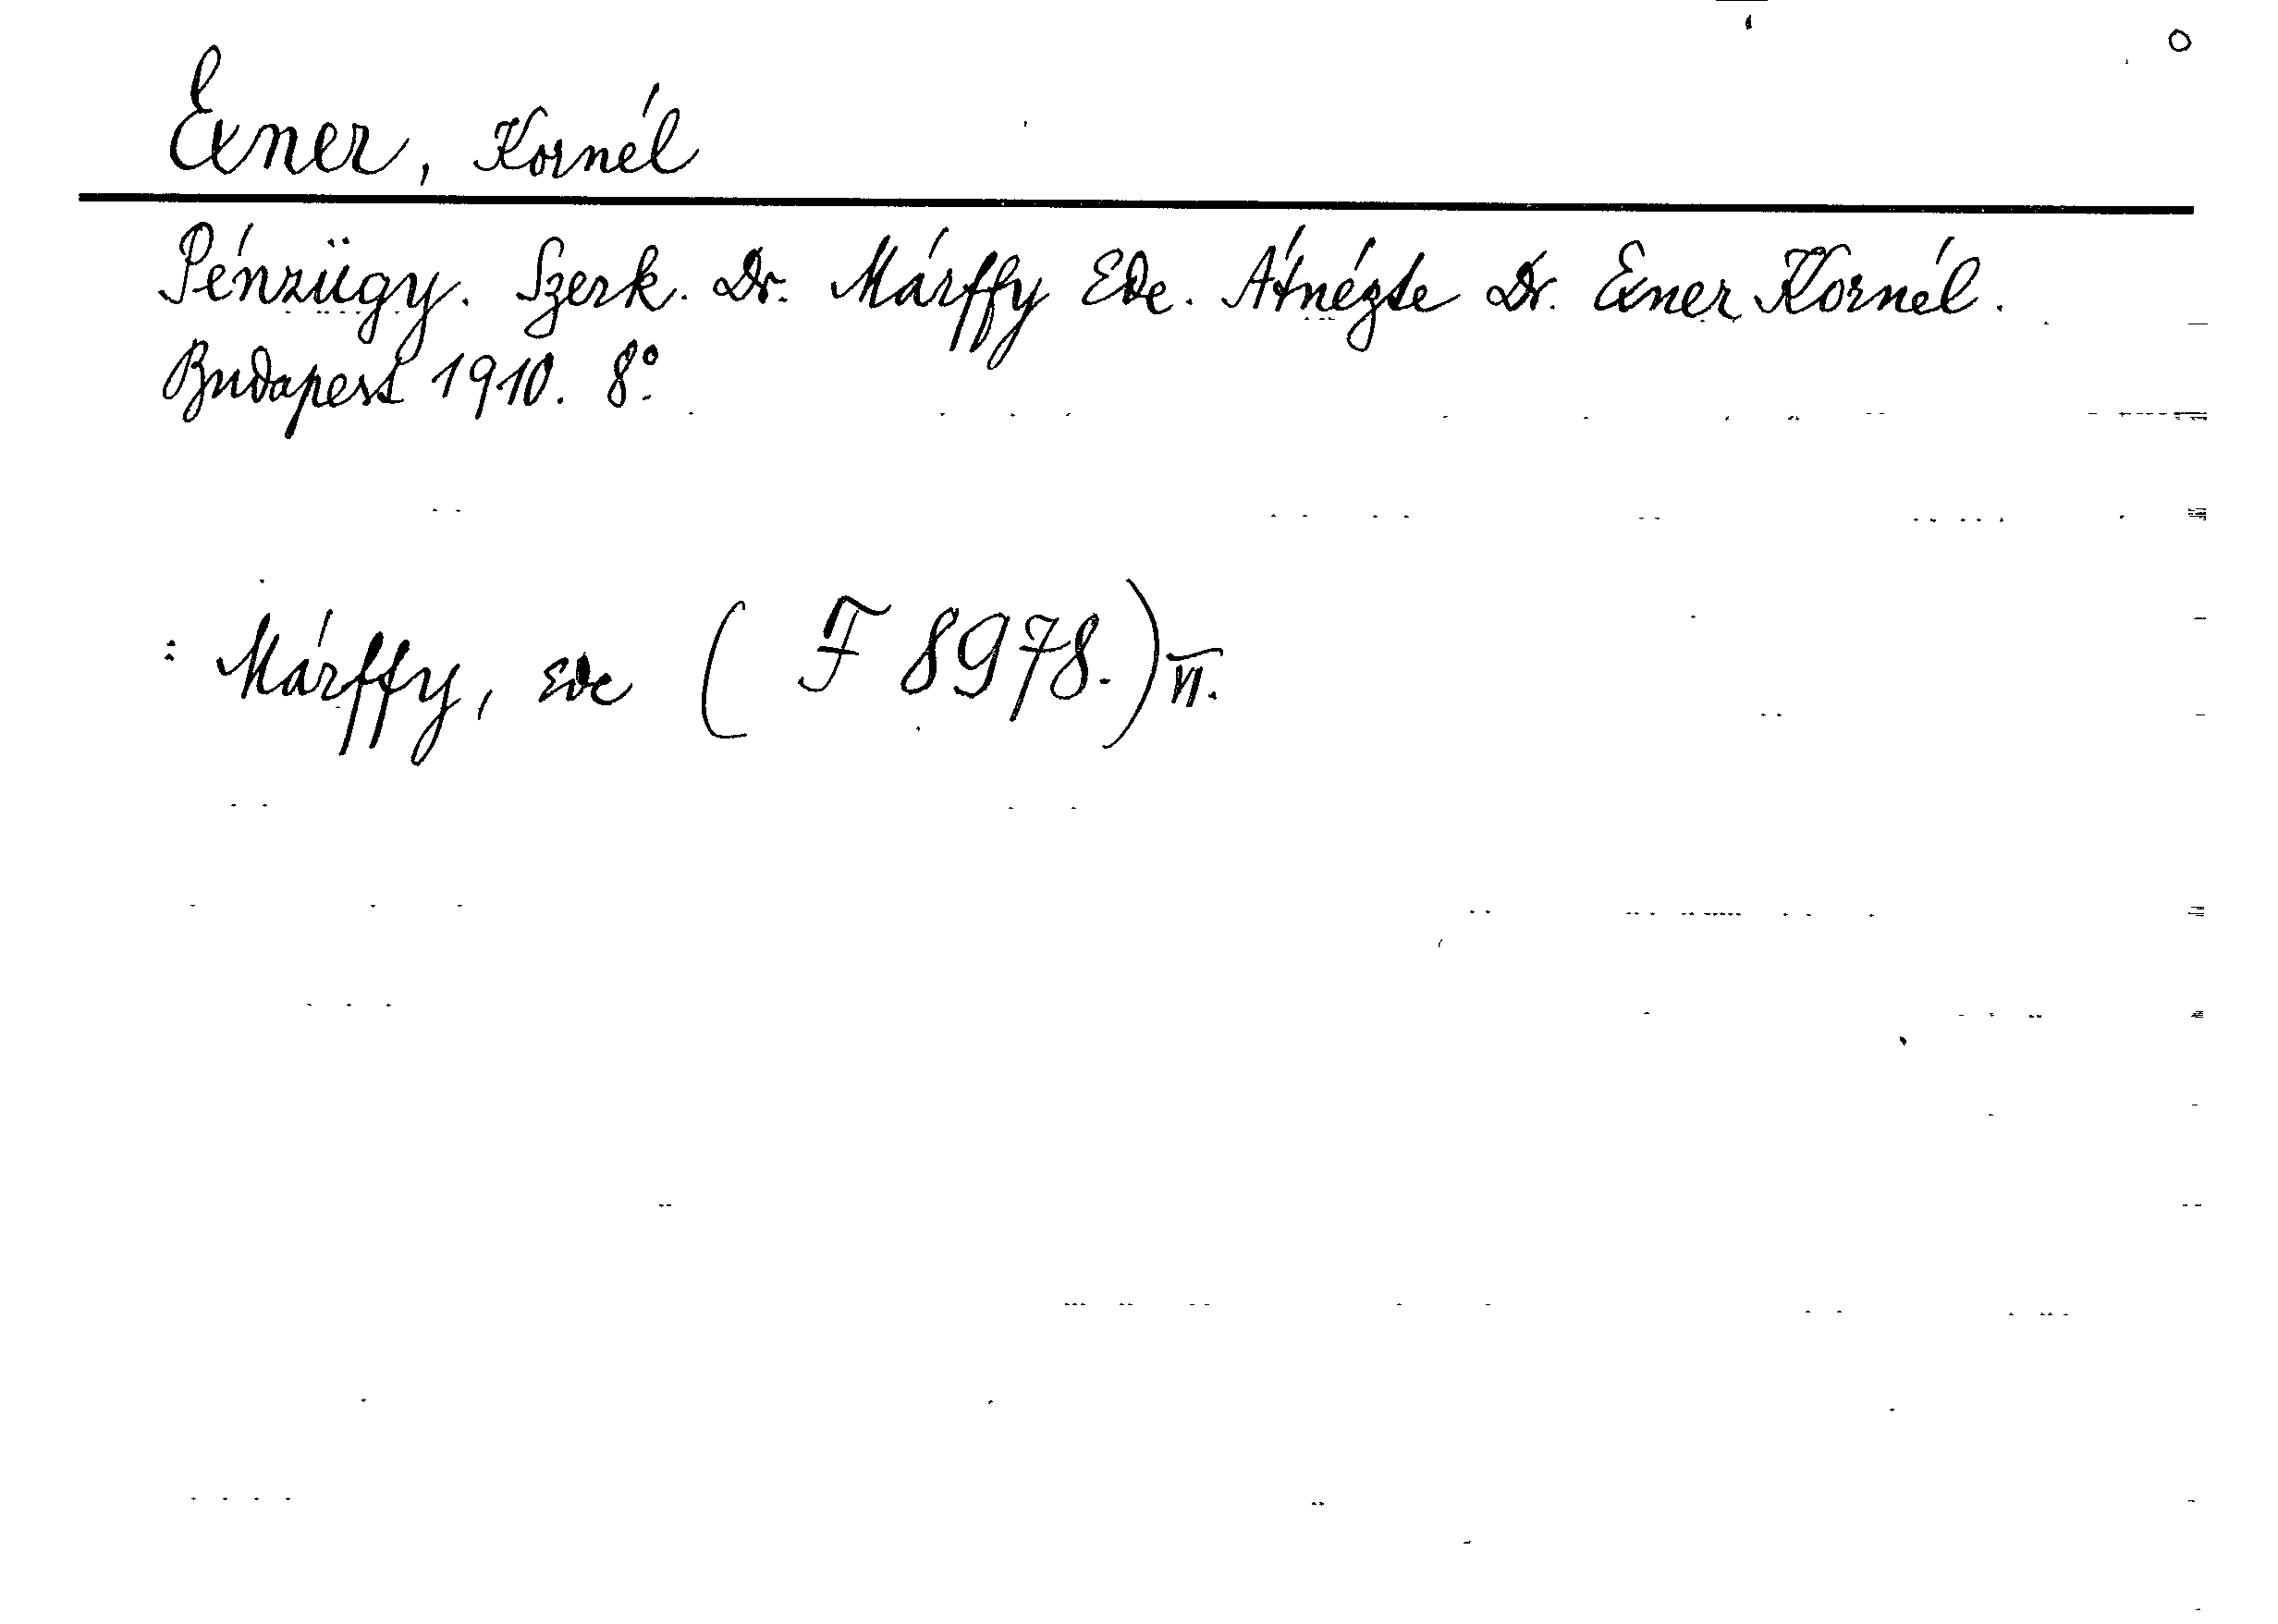 Exner, Kornél
Pénzügy. Szerk. Dr. Márffy Ede. Átnézte Dr. Exner Kornél.
Budapest 1910. 8°.
: Márffy, Ede ( F 8978.) VI.